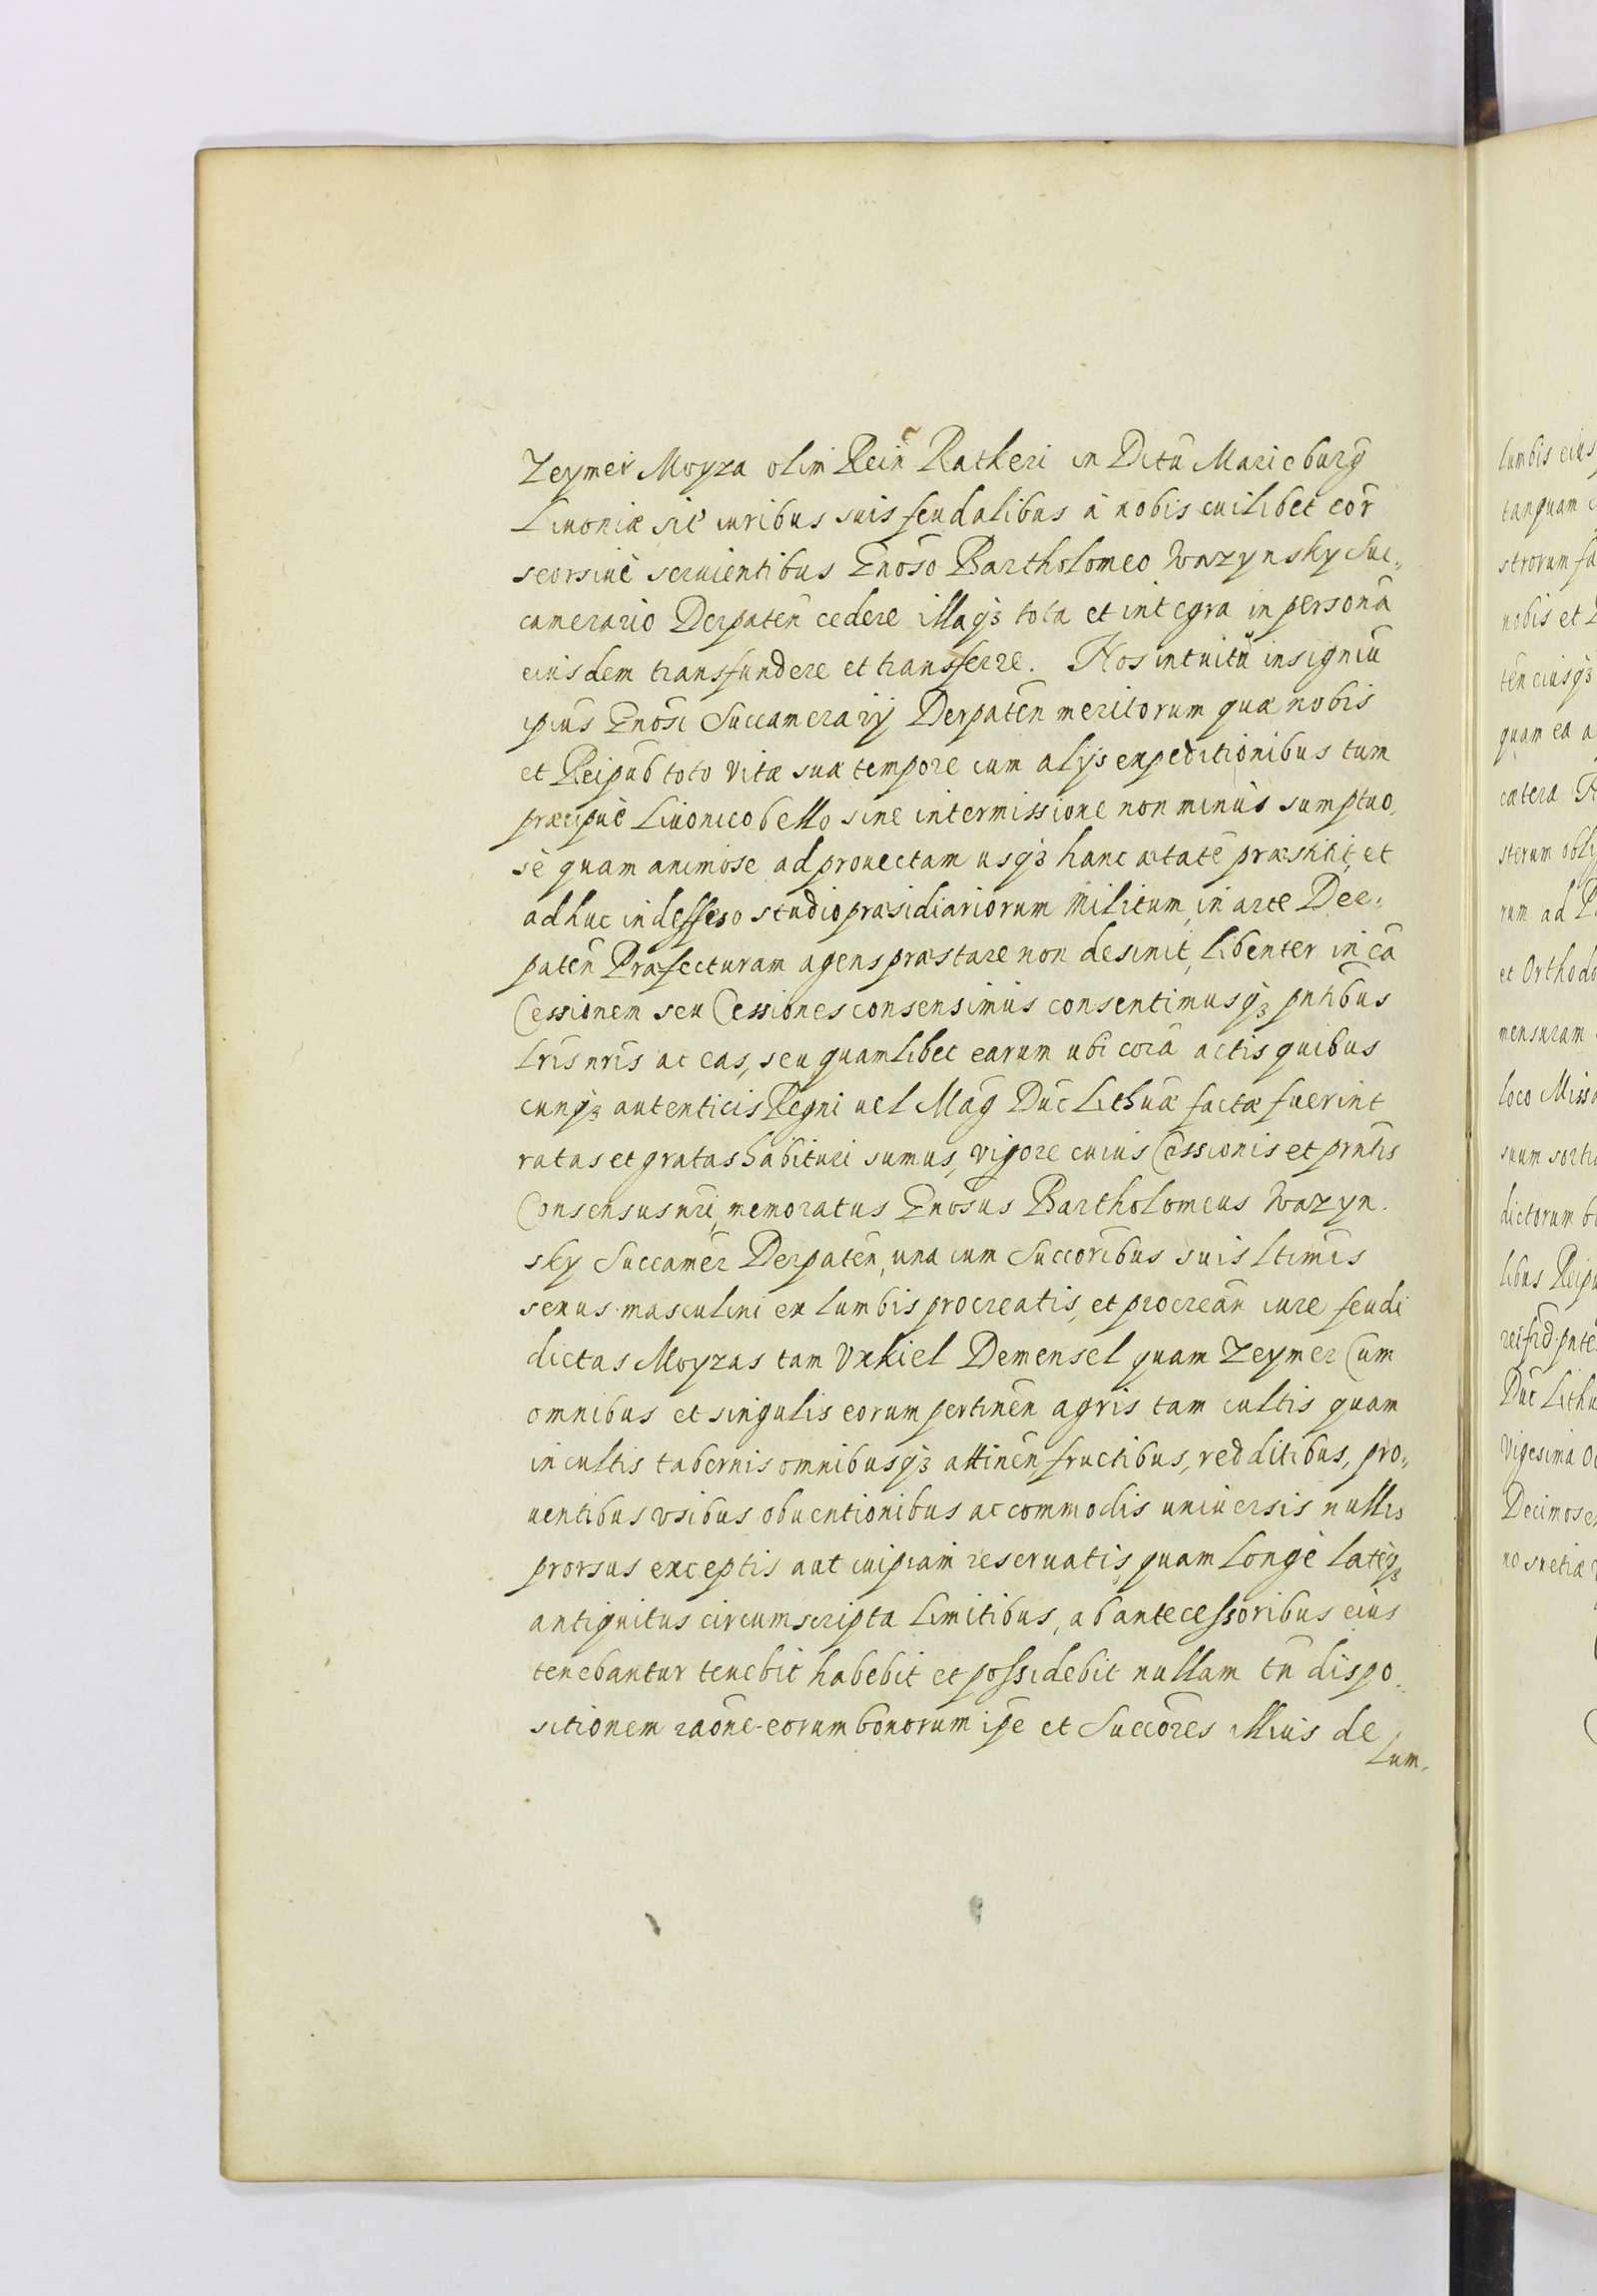 Zeymer Moyza olim Rein̄ Ratheri in Ditū Marieburg̅
Liuoniæ siẽ iuribus suis feudalibus à nobis cuilibet eor̄
seorsiuẽ seruientibus Gnoso Bartholomeo Wazynsky Suc„
camerario Derpateñ cedere illaqȝ tota et integra in personā
eiusdem transfundere et transferre. Nos intuitū insigniū
ipius Gnosi Succamerarij Derpateñ meritorum quæ nobis
et Reipub toto vitæ suæ tempore cum alijs expeditionibus tum
præcipuè Liuonico bello sine intermissione non minùs sumptuo„
sè quam animose ad prouectam usqȝ hanc ætatē præstitit, et
adhuc indesseso studio præsidiariorum Militum, in arce Der„
pateñ Præfecturam agens præstare non desinit, libenter in eā
Cessionem seu Cessiones consensimus consentimusqȝ pntibus
Lris nris ac eas, seu quamlibet earum ubi corā actis quibus
cunqȝ autenticis Regni uel Mag̅ Duc̄ Lithuæ factæ fuerint
ratas et gratas habituri sumus, vigore cuius Cessionis et prntis
Consensus nri, memoratus Gnosus Bartholomeus Wazyn„
sky Succamer̄ Derpateñ, una cum Succoribus suis Ltimis
sexus masculini ex lumbis procreatis, et procreañ iure feudi
dictas Moyzas tam Vxkiel Demensel quam Zeymer Cum
omnibus et singulis eorum pertineñ agris tam cultis quam
incultis tabernis omnibusqȝ attineñ, fructibus, redditibus, pro„
uentibus vsibus obuentionibus ac commodis uniuersis nullis
prorsus exceptis aut cuipiam reseruatis, quam longè latèqȝ
antiquitus circumscripta limitibus, ab antecessoribus eius
tenebantur tenebit habebit et possidebit nullam tñ dispo„
sitionem raōne eorum bonorum ipe et Succores illius de
Lum„
lumbis eius
tanquam
strorum
nobis et
teñ eiusqȝ
quam ea a
cætera
sterum
rum ad
et Orthodo
mensuram
loco Miss
suum sorti
dictorum b
libus Reip
rei fid pnte
Duc̄ Lithu
Vigesima O
Decimose
no suetiæ